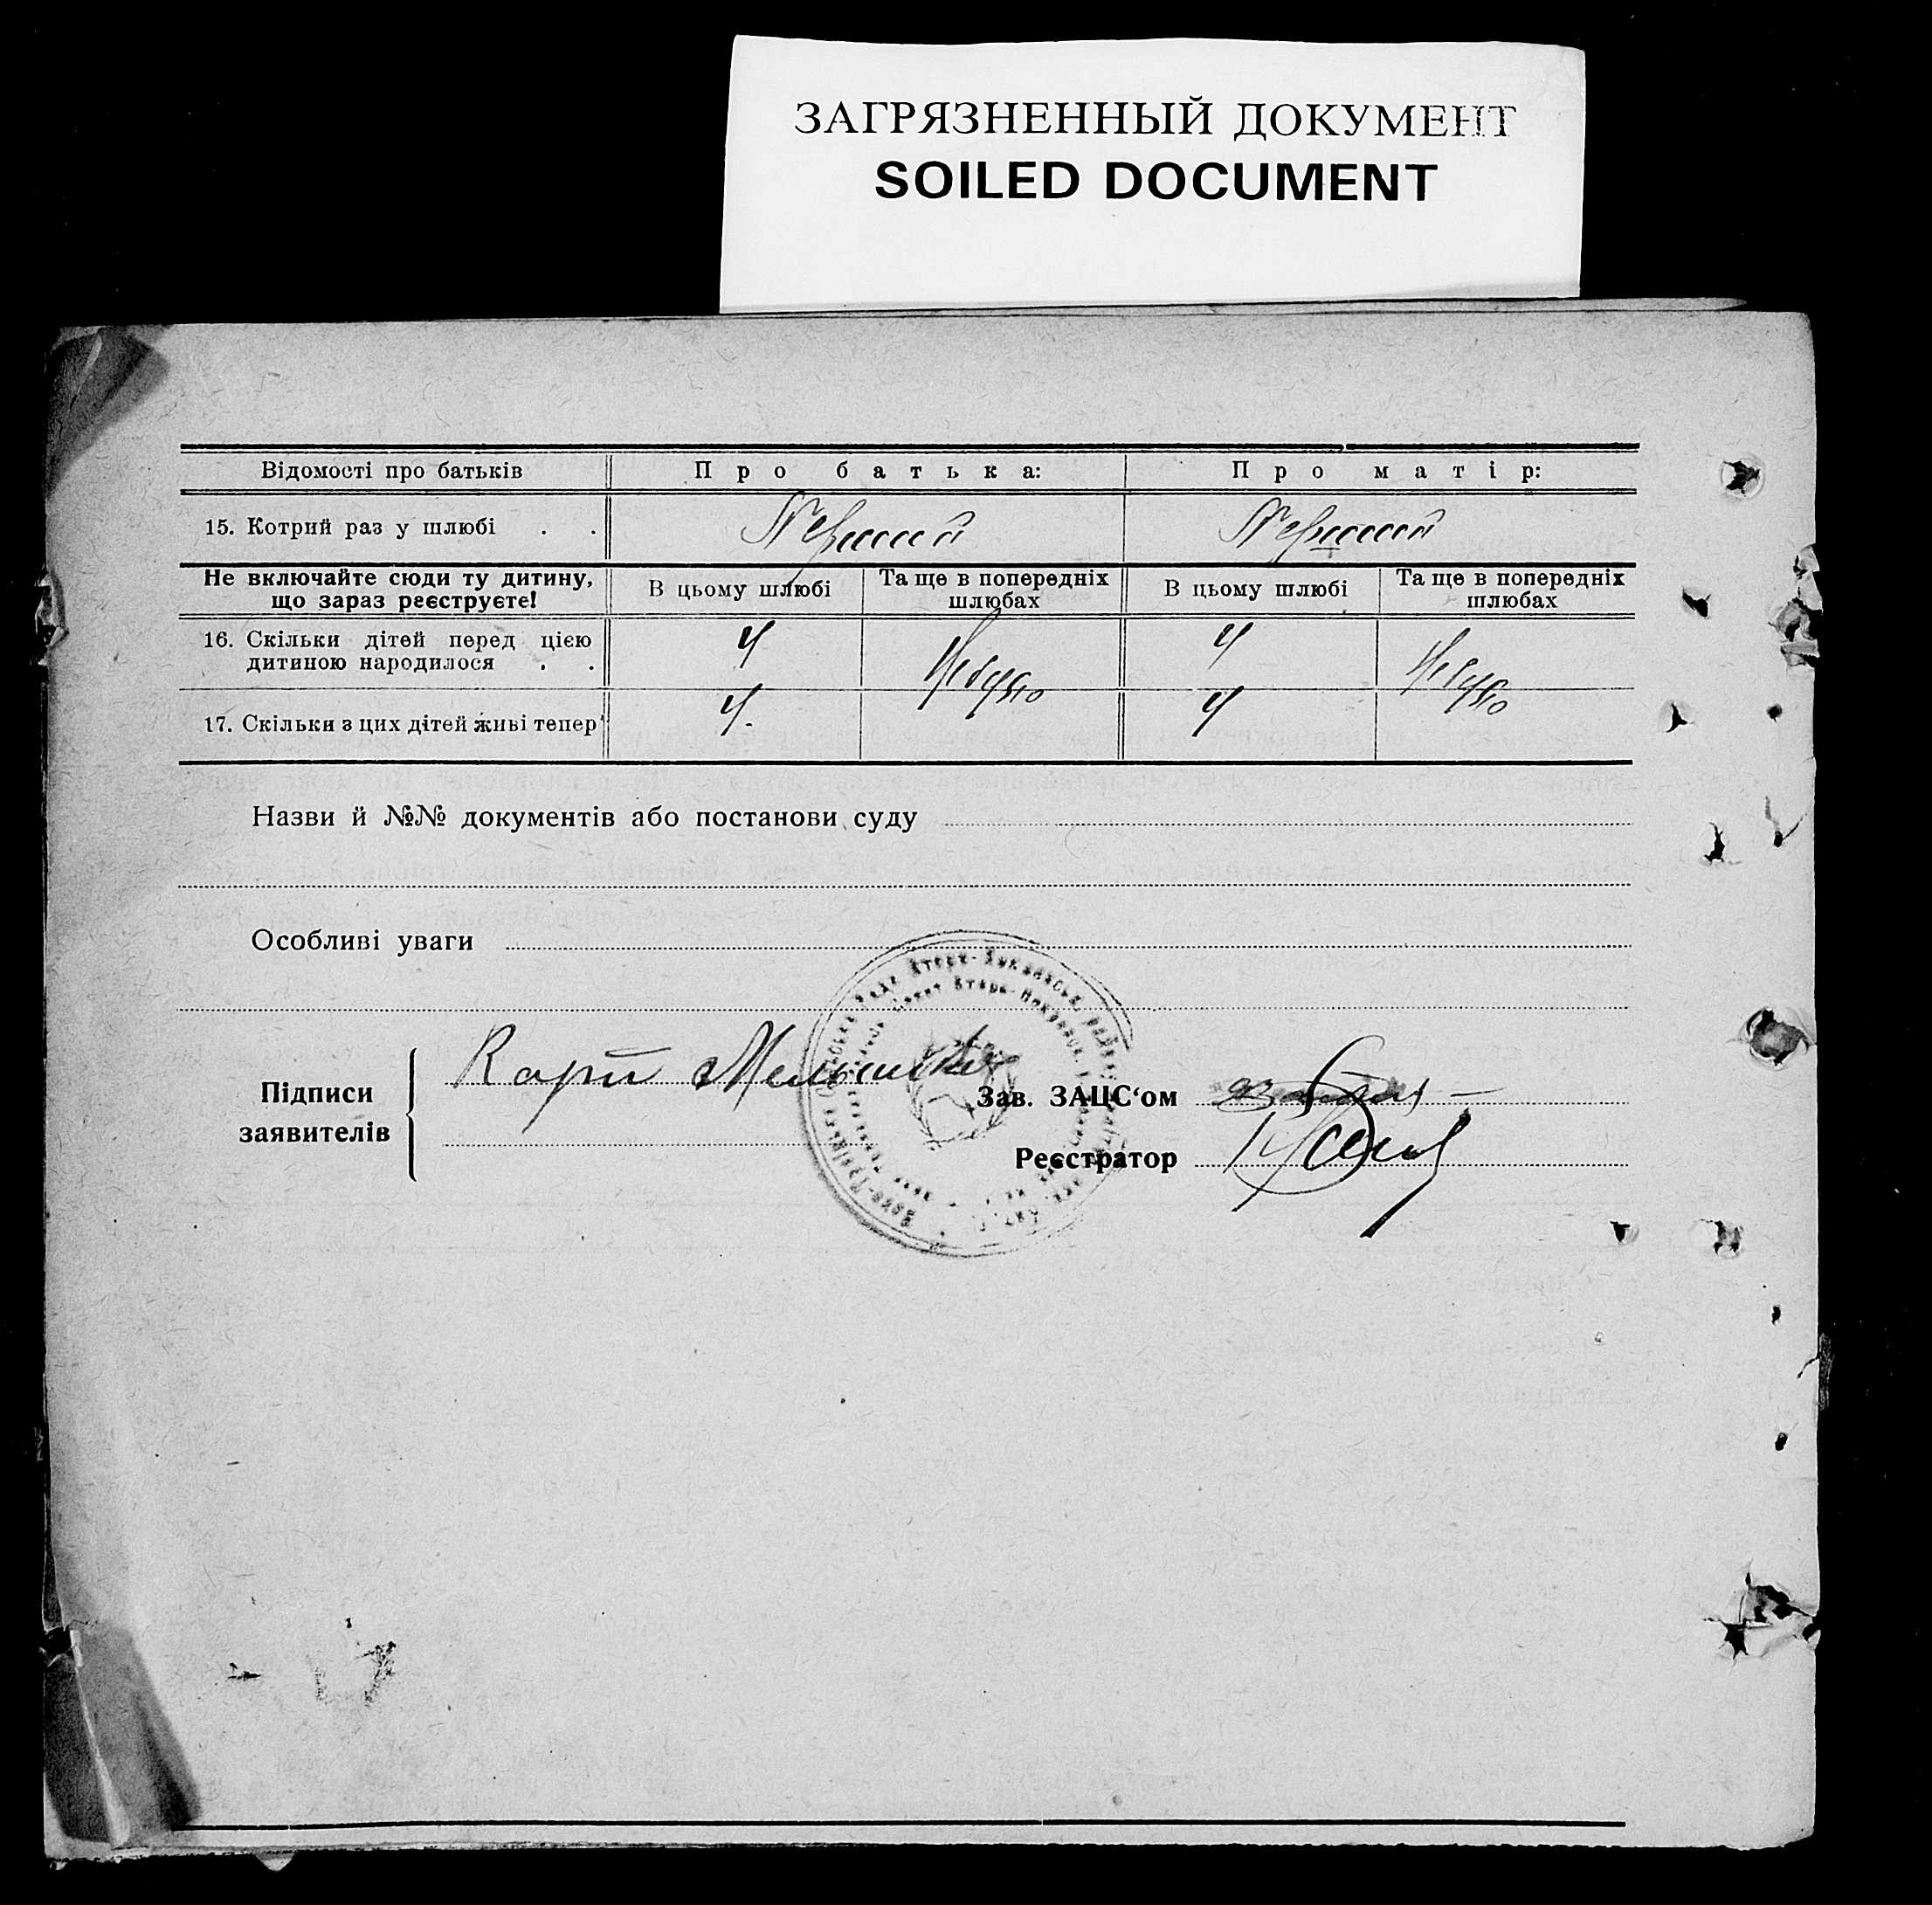 ЗАГРЯЗНЕННЫЙ ДОКУМЕНТ
SOILED DOCUMENT
Відомості про батьків Про батька: Про матір:
15. Котрий раз у шлюбі . . Перший Перший
Не включайте сюди ту дитину, що зараз реєструєте! В цьому шлюбі Та ще в попередніх шлюбах В цьому шлюбі Та ще в попередніх шлюбах
16. Скільки дітей перед цією
дитиною народилося . . 4 Не було 4 Не було
17. Скільки з цих дітей живі тепер 4. 4
Назви й №№ документів або постанови суду
Особливі уваги
Підписи
заявителів
Зав. ЗАЦС‘ом
Реєстратор